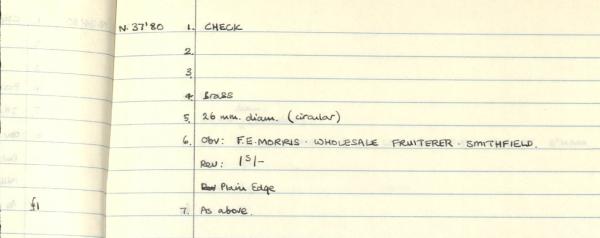 N. 37'80 1. CHECK
2.
3.
4. Brass
5. 26 mm. diam. (circular)
6. Obv: F.E. MORRIS · WHOLESALE FRUITERER · SMITHFIELD.
Rev: 1S/-
Plain Edge
£1 7. As above.